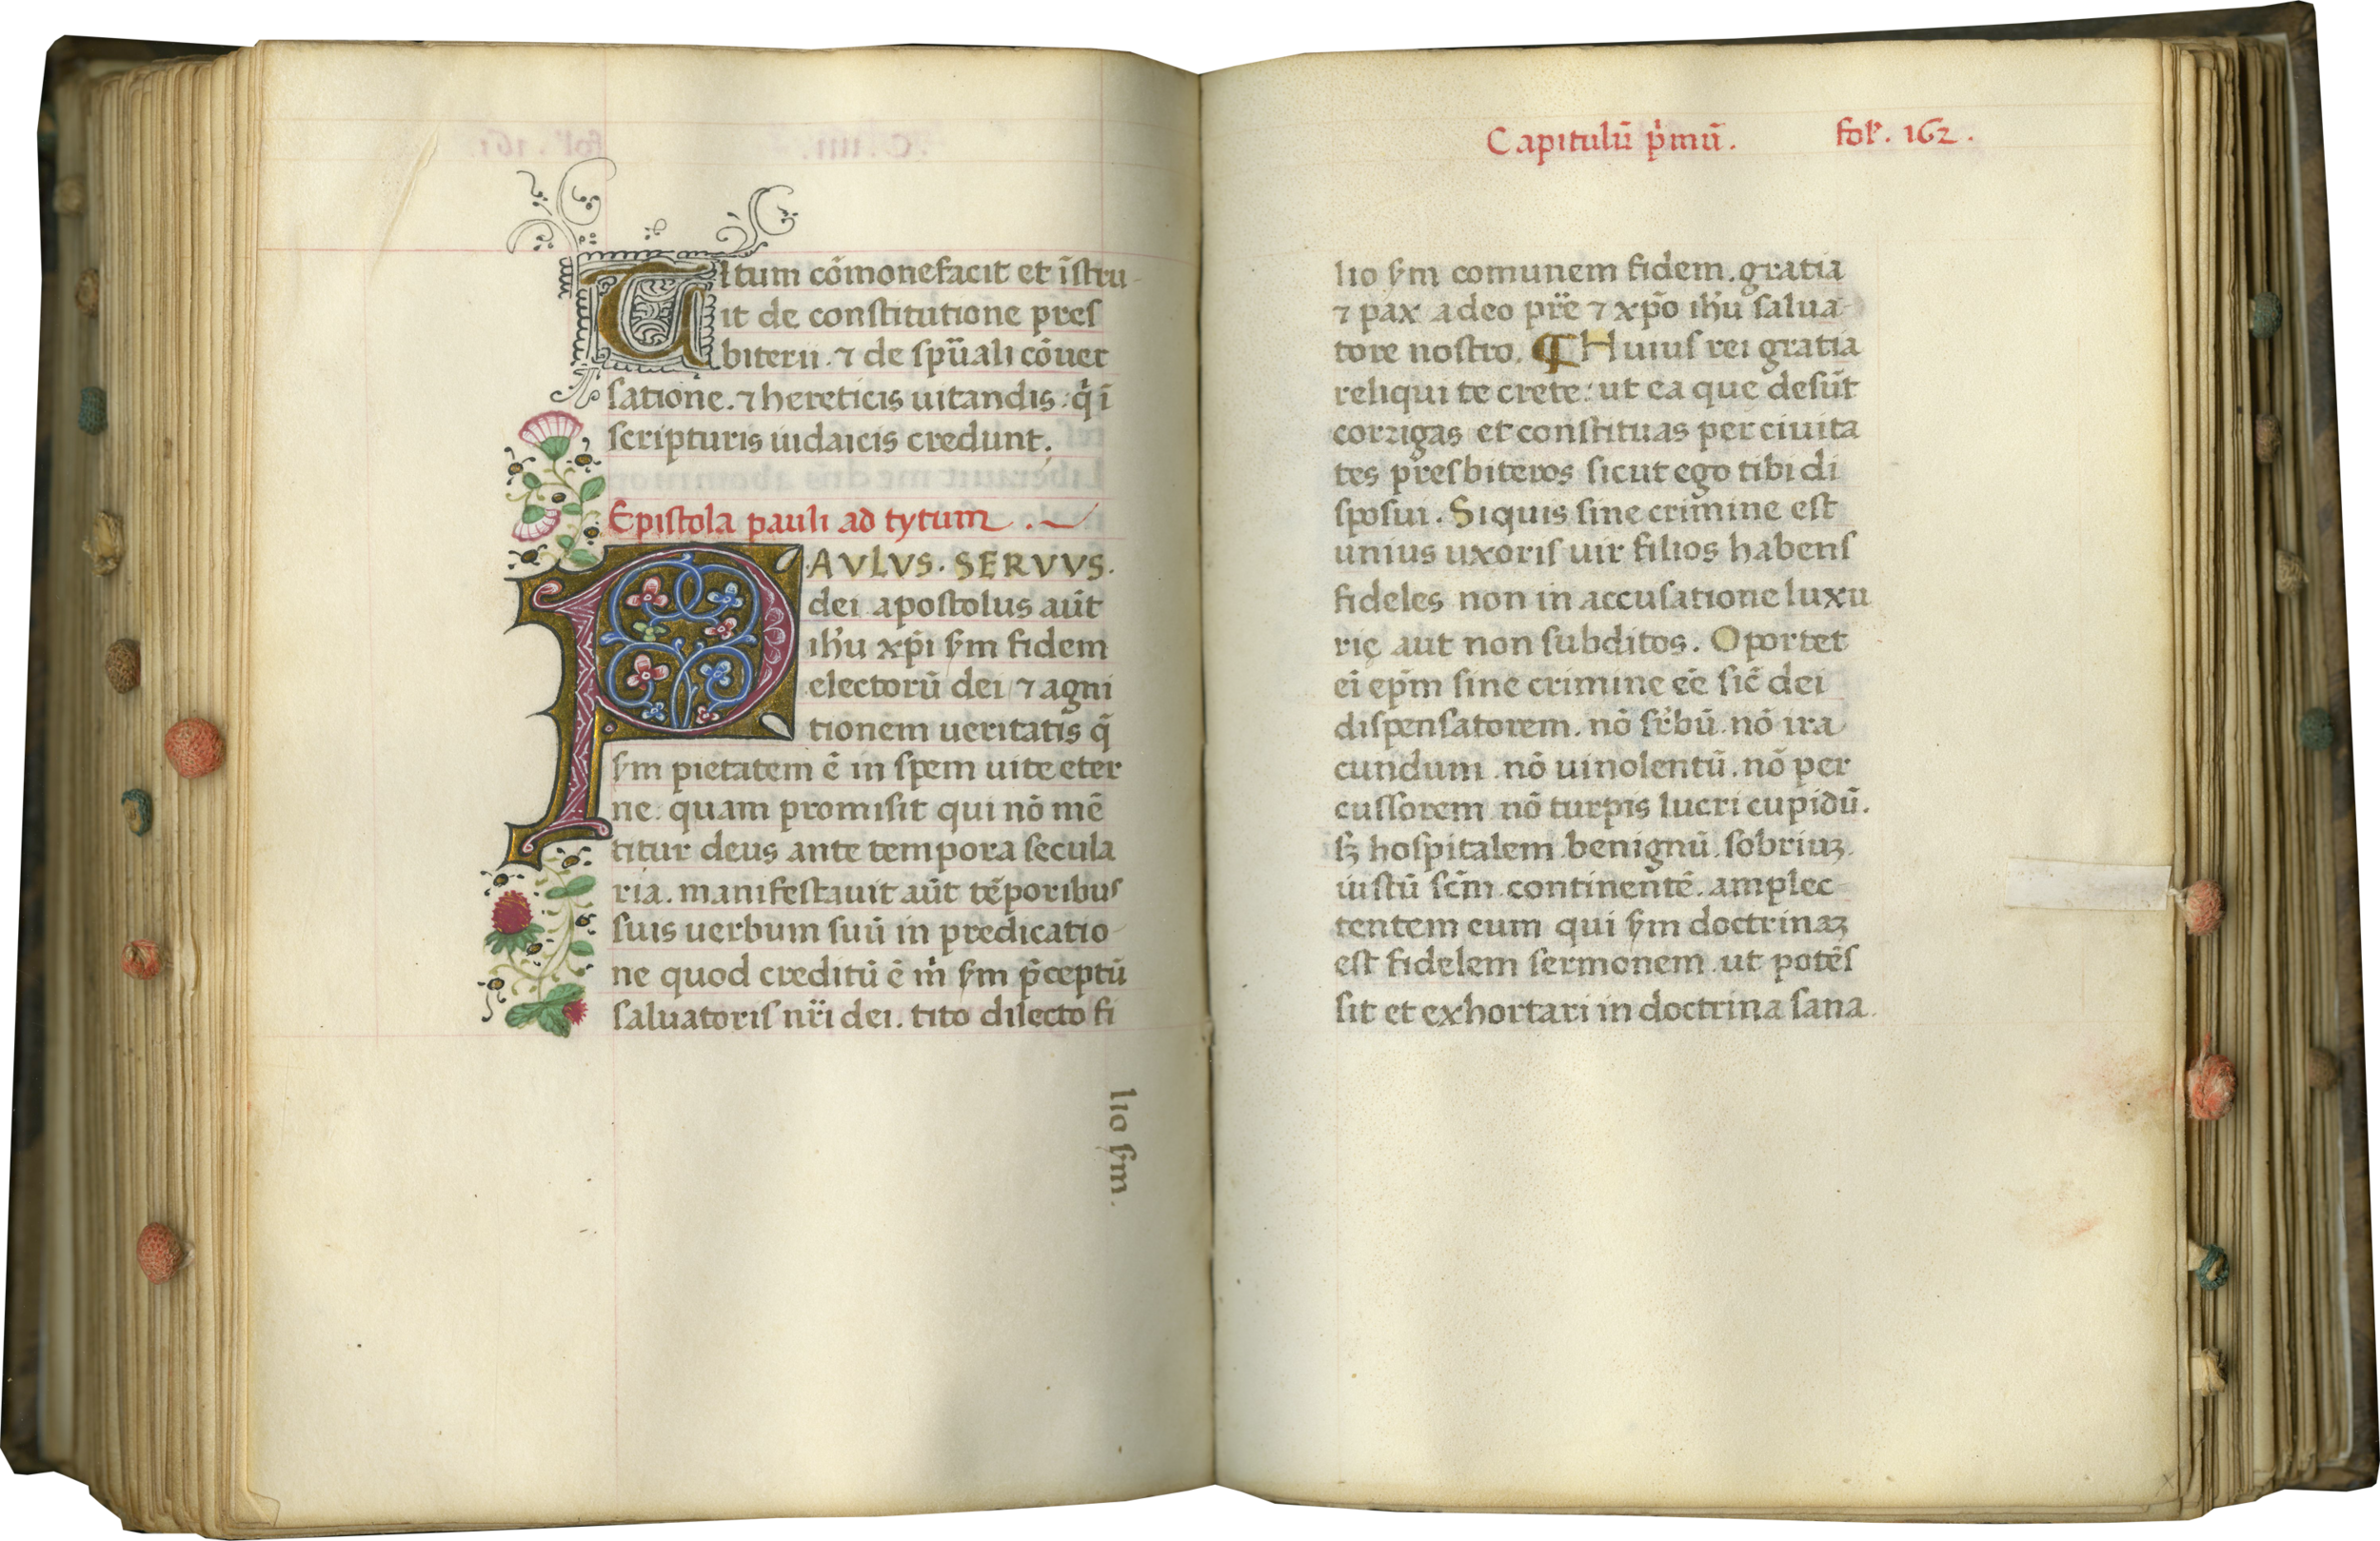 Titum cōmonefacit et īstru-
it de constitutione pres
biterii. ⁊ de spūali cōuer
satione. ⁊ hereticis uitandis: q̇ ī
scripturis iudaicis credunt.
Epistola pauli ad tytum.
PAVLVS. SERVVS.
dei apostolus aūt
ihu xp̄i s̄m fidem
electorū dei ⁊ agni
tionem ueritatis q̄
s̄m pietatem ē in spem uite eter
ne: quam promisit qui nō mē
titur deus ante tempora secula
ria. manifestauit aūt tēporibus
suis uerbum suū in predicatio-
ne quod creditū ē m̍ s̄m p̄ceptū
saluatoris nr̄i dei. tito dilecto fi
lio s̄m.
Capitulū p̍mū. fol. 162.
lio s̄m comunem fidem. gratia
⁊ pax a deo pr̄e ⁊ xp̄o ihu salua-
tore nostro. ¶ Huius rei gratia
reliqui te crete: ut ea que desūt
corrigas et constituas per ciuita
tes presbiteros sicut ego tibi di
sposui. Siquis sine crimine est
unius uxoris uir filios habens
fideles non in accusatione luxu
rię aut non subditos. Oportet
ei ep̄m sine crimine eē sic̄ dei
dispensatorem. nō sr̄bū. nō ira
cundum. nō uinolentū. nō per
cussorem nō turpis lucri cupidū.
sꝫ hospitalem. benignū. sobriuꝫ.
iustū sc̄m. continentē. amplec-
tentem eum qui s̄m doctrinaꝫ
est fidelem sermonem. ut potēs
sit et exhortari in doctrina sana.